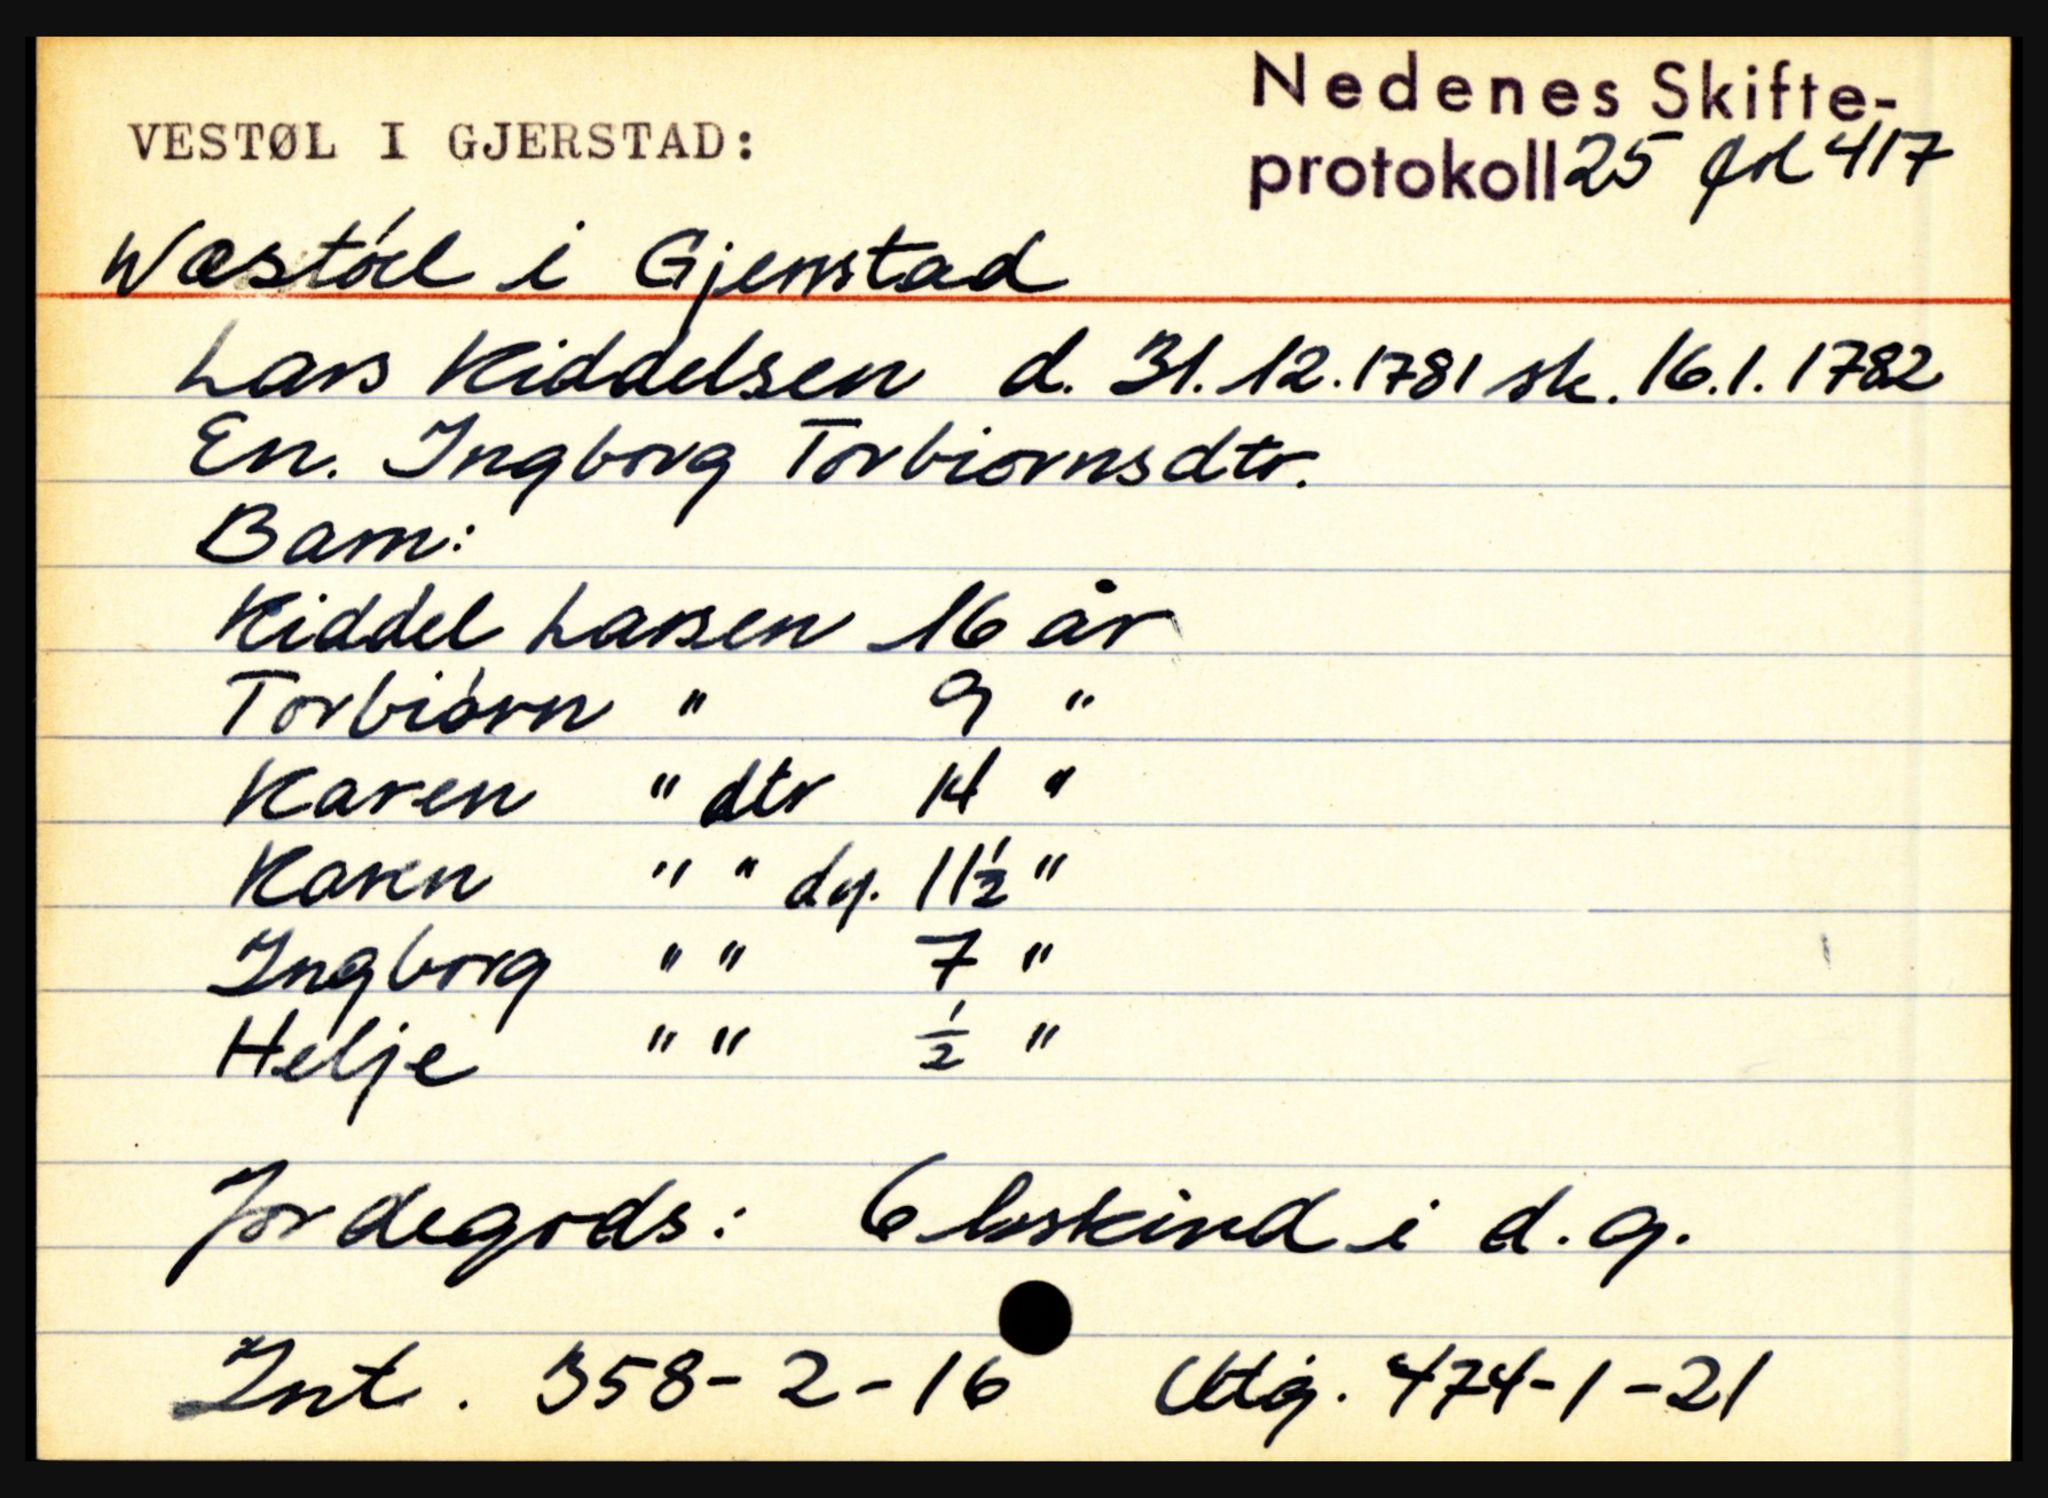 Nedenes Skifte-
VESTØL I GJERSTAD:
protokoll 25 fol 417
Wæstöel i Gjerstad
Lars Kiddelsen d. 31.12.1781 sk. 16.1.1782
En. Ingborg Torbiornsdtr.
Barn:
Kiddel Larsen 16 år
Torbiörn " 9 "
Karen " dtr 14 "
Karen " " dy. 11½ "
Ingborg " " 7 "
Helje " " ½ "
Jordegods: 6 bskind i d.g.
Int. 358-2-16 Utg. 474-1-21